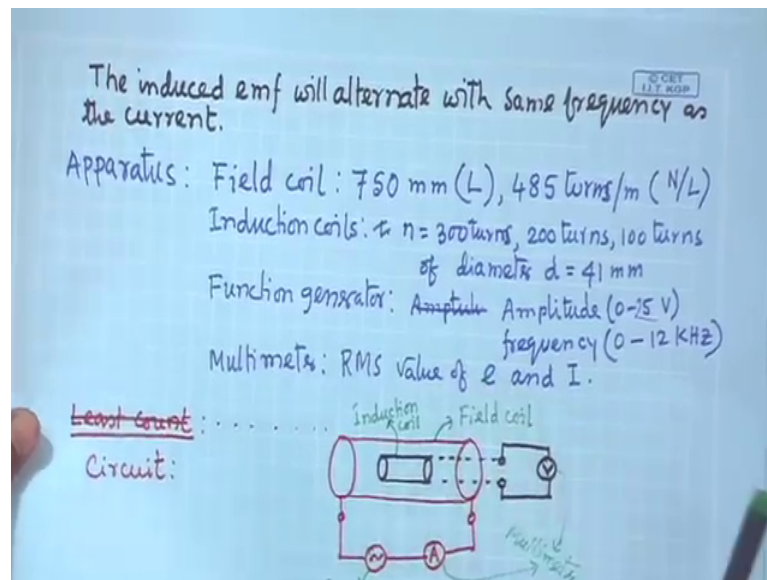 The induced emf will alternate with same frequency as
the current.
© CET
I.I.T. KGP
Apparatus: Field coil: 750 mm (L), 485 turns/m (N/L)
Induction coils: n = 300 turns, 200 turns, 100 turns
of diameter d = 41 mm
Function generator: Amplitude (0-25 V)
frequency (0-12 KHZ)
Multimeter: RMS value of e and I.
Least count : ........
Circuit:
Induction
coil
Field coil
V
A
Multimeter